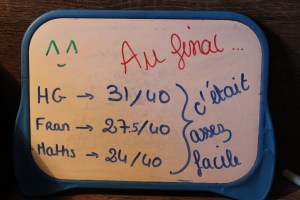 Au final...
HG → 31/40
Fran → 27.5/40
Maths → 24/40
c'était
assez
facile